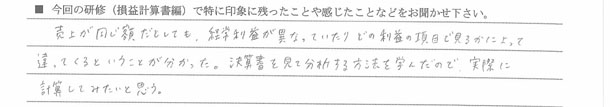 ■ 今回の研修（損益計算書編）で特に印象に残ったことや感じたことなどをお聞かせ下さい。
売上が同じ額だとしても、経常利益が異なっていたりどの利益の項目で見るかによって
違ってくるということが分かった。決算書を見て分析する方法を学んだので、実際に
計算してみたいと思う。